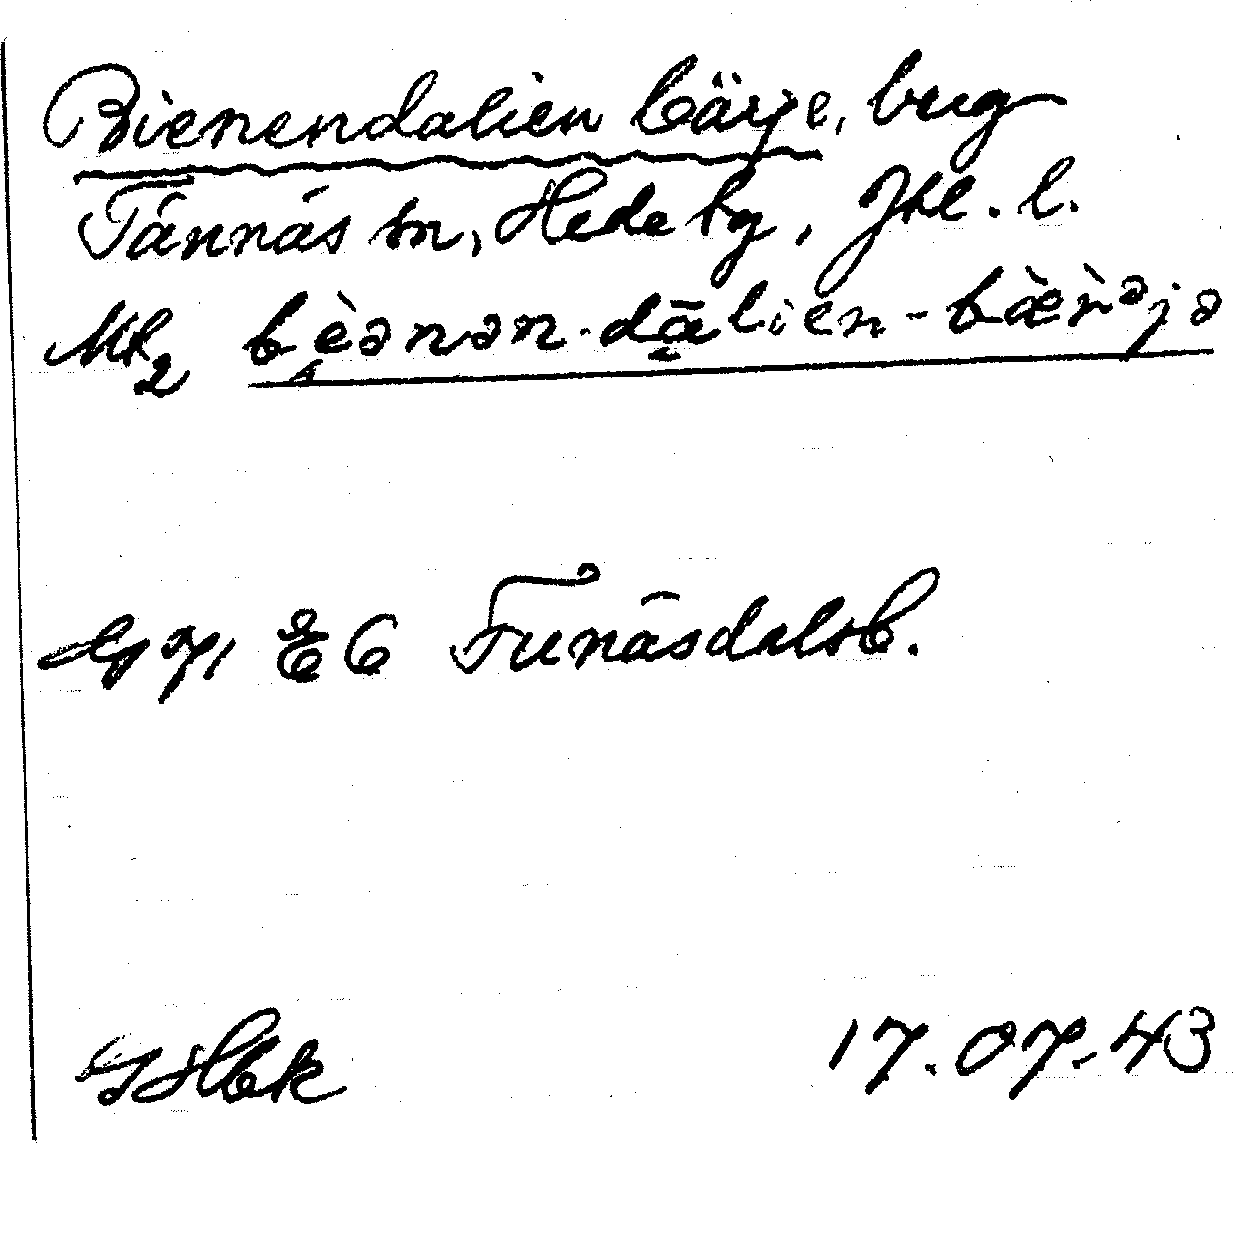 Bienendalien bärje, berg
Tännäs sn, Hede tg, Jtl. l.
bèənən-dālien-bæ̀r̀əjə
Funäsdalsb.
17.07.43